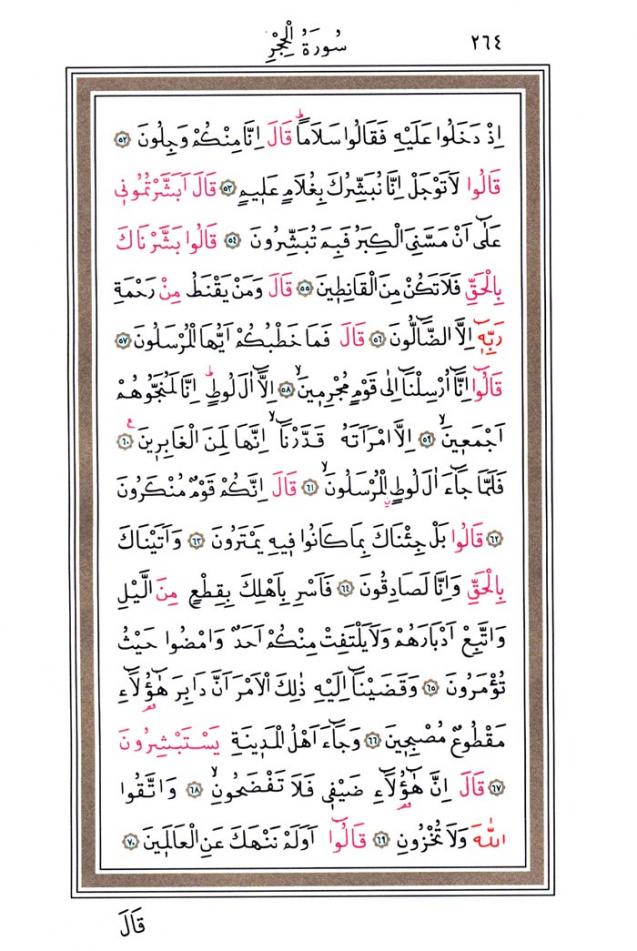 ٢٦٤ سُورَةُ الْحِجْرِ
اِذْ دَخَلُوا عَلَيْهِ فَقَالُوا سَلَامًاۜ قَالَ اِنَّا مِنْكُمْ وَجِلُونَ ﴿٥٢﴾
قَالُوا لَا تَوْجَلْ اِنَّا نُبَشِّرُكَ بِغُلَامٍ عَلٖيمٍ ﴿٥٣﴾ قَالَ اَبَشَّرْتُمُونٖى
عَلٰٓى اَنْ مَسَّنِىَ الْكِبَرُ فَبِمَ تُبَشِّرُونَ ﴿٥٤﴾ قَالُوا بَشَّرْنَاكَ
بِالْحَقِّ فَلَا تَكُنْ مِنَ الْقَانِطٖينَ ﴿٥٥﴾ قَالَ وَمَنْ يَقْنَطُ مِنْ رَحْمَةِ
رَبِّهٖٓ اِلَّا الضَّٓالُّونَ ﴿٥٦﴾ قَالَ فَمَا خَطْبُكُمْ اَيُّهَا الْمُرْسَلُونَ ﴿٥٧﴾
قَالُٓوا اِنَّٓا اُرْسِلْنَٓا اِلٰى قَوْمٍ مُجْرِمٖينَۙ ﴿٥٨﴾ اِلَّٓا اٰلَ لُوطٍۜ اِنَّا لَمُنَجُّوهُمْ
اَجْمَعٖينَۙ ﴿٥٩﴾ اِلَّا امْرَاَتَهُ قَدَّرْنَٓاۙ اِنَّهَا لَمِنَ الْغَابِرٖينَ ﴿٦٠﴾ ع
فَلَمَّا جَٓاءَ اٰلَ لُوطٍ الْمُرْسَلُونَۙ ﴿٦١﴾ قَالَ اِنَّكُمْ قَوْمٌ مُنْكَرُونَ
﴿٦٢﴾ قَالُوا بَلْ جِئْنَاكَ بِمَا كَانُوا فٖيهِ يَمْتَرُونَ ﴿٦٣﴾ وَاَتَيْنَاكَ
بِالْحَقِّ وَاِنَّا لَصَادِقُونَ ﴿٦٤﴾ فَاَسْرِ بِاَهْلِكَ بِقِطْعٍ مِنَ الَّيْلِ
وَاتَّبِعْ اَدْبَارَهُمْ وَلَا يَلْتَفِتْ مِنْكُمْ اَحَدٌ وَامْضُوا حَيْثُ
تُؤْمَرُونَ ﴿٦٥﴾ وَقَضَيْنَٓا اِلَيْهِ ذٰلِكَ الْاَمْرَ اَنَّ دَابِرَ هٰٓؤُ۬لَٓاءِ
مَقْطُوعٌ مُصْبِحٖينَ ﴿٦٦﴾ وَجَٓاءَ اَهْلُ الْمَدٖينَةِ يَسْتَبْشِرُونَ
﴿٦٧﴾ قَالَ اِنَّ هٰٓؤُ۬لَٓاءِ ضَيْفٖى فَلَا تَفْضَحُونِۙ ﴿٦٨﴾ وَاتَّقُوا
اللّٰهَ وَلَا تُخْزُونِ ﴿٦٩﴾ قَالُٓوا اَوَلَمْ نَنْهَكَ عَنِ الْعَالَمٖينَ ﴿٧٠﴾
قَالَ